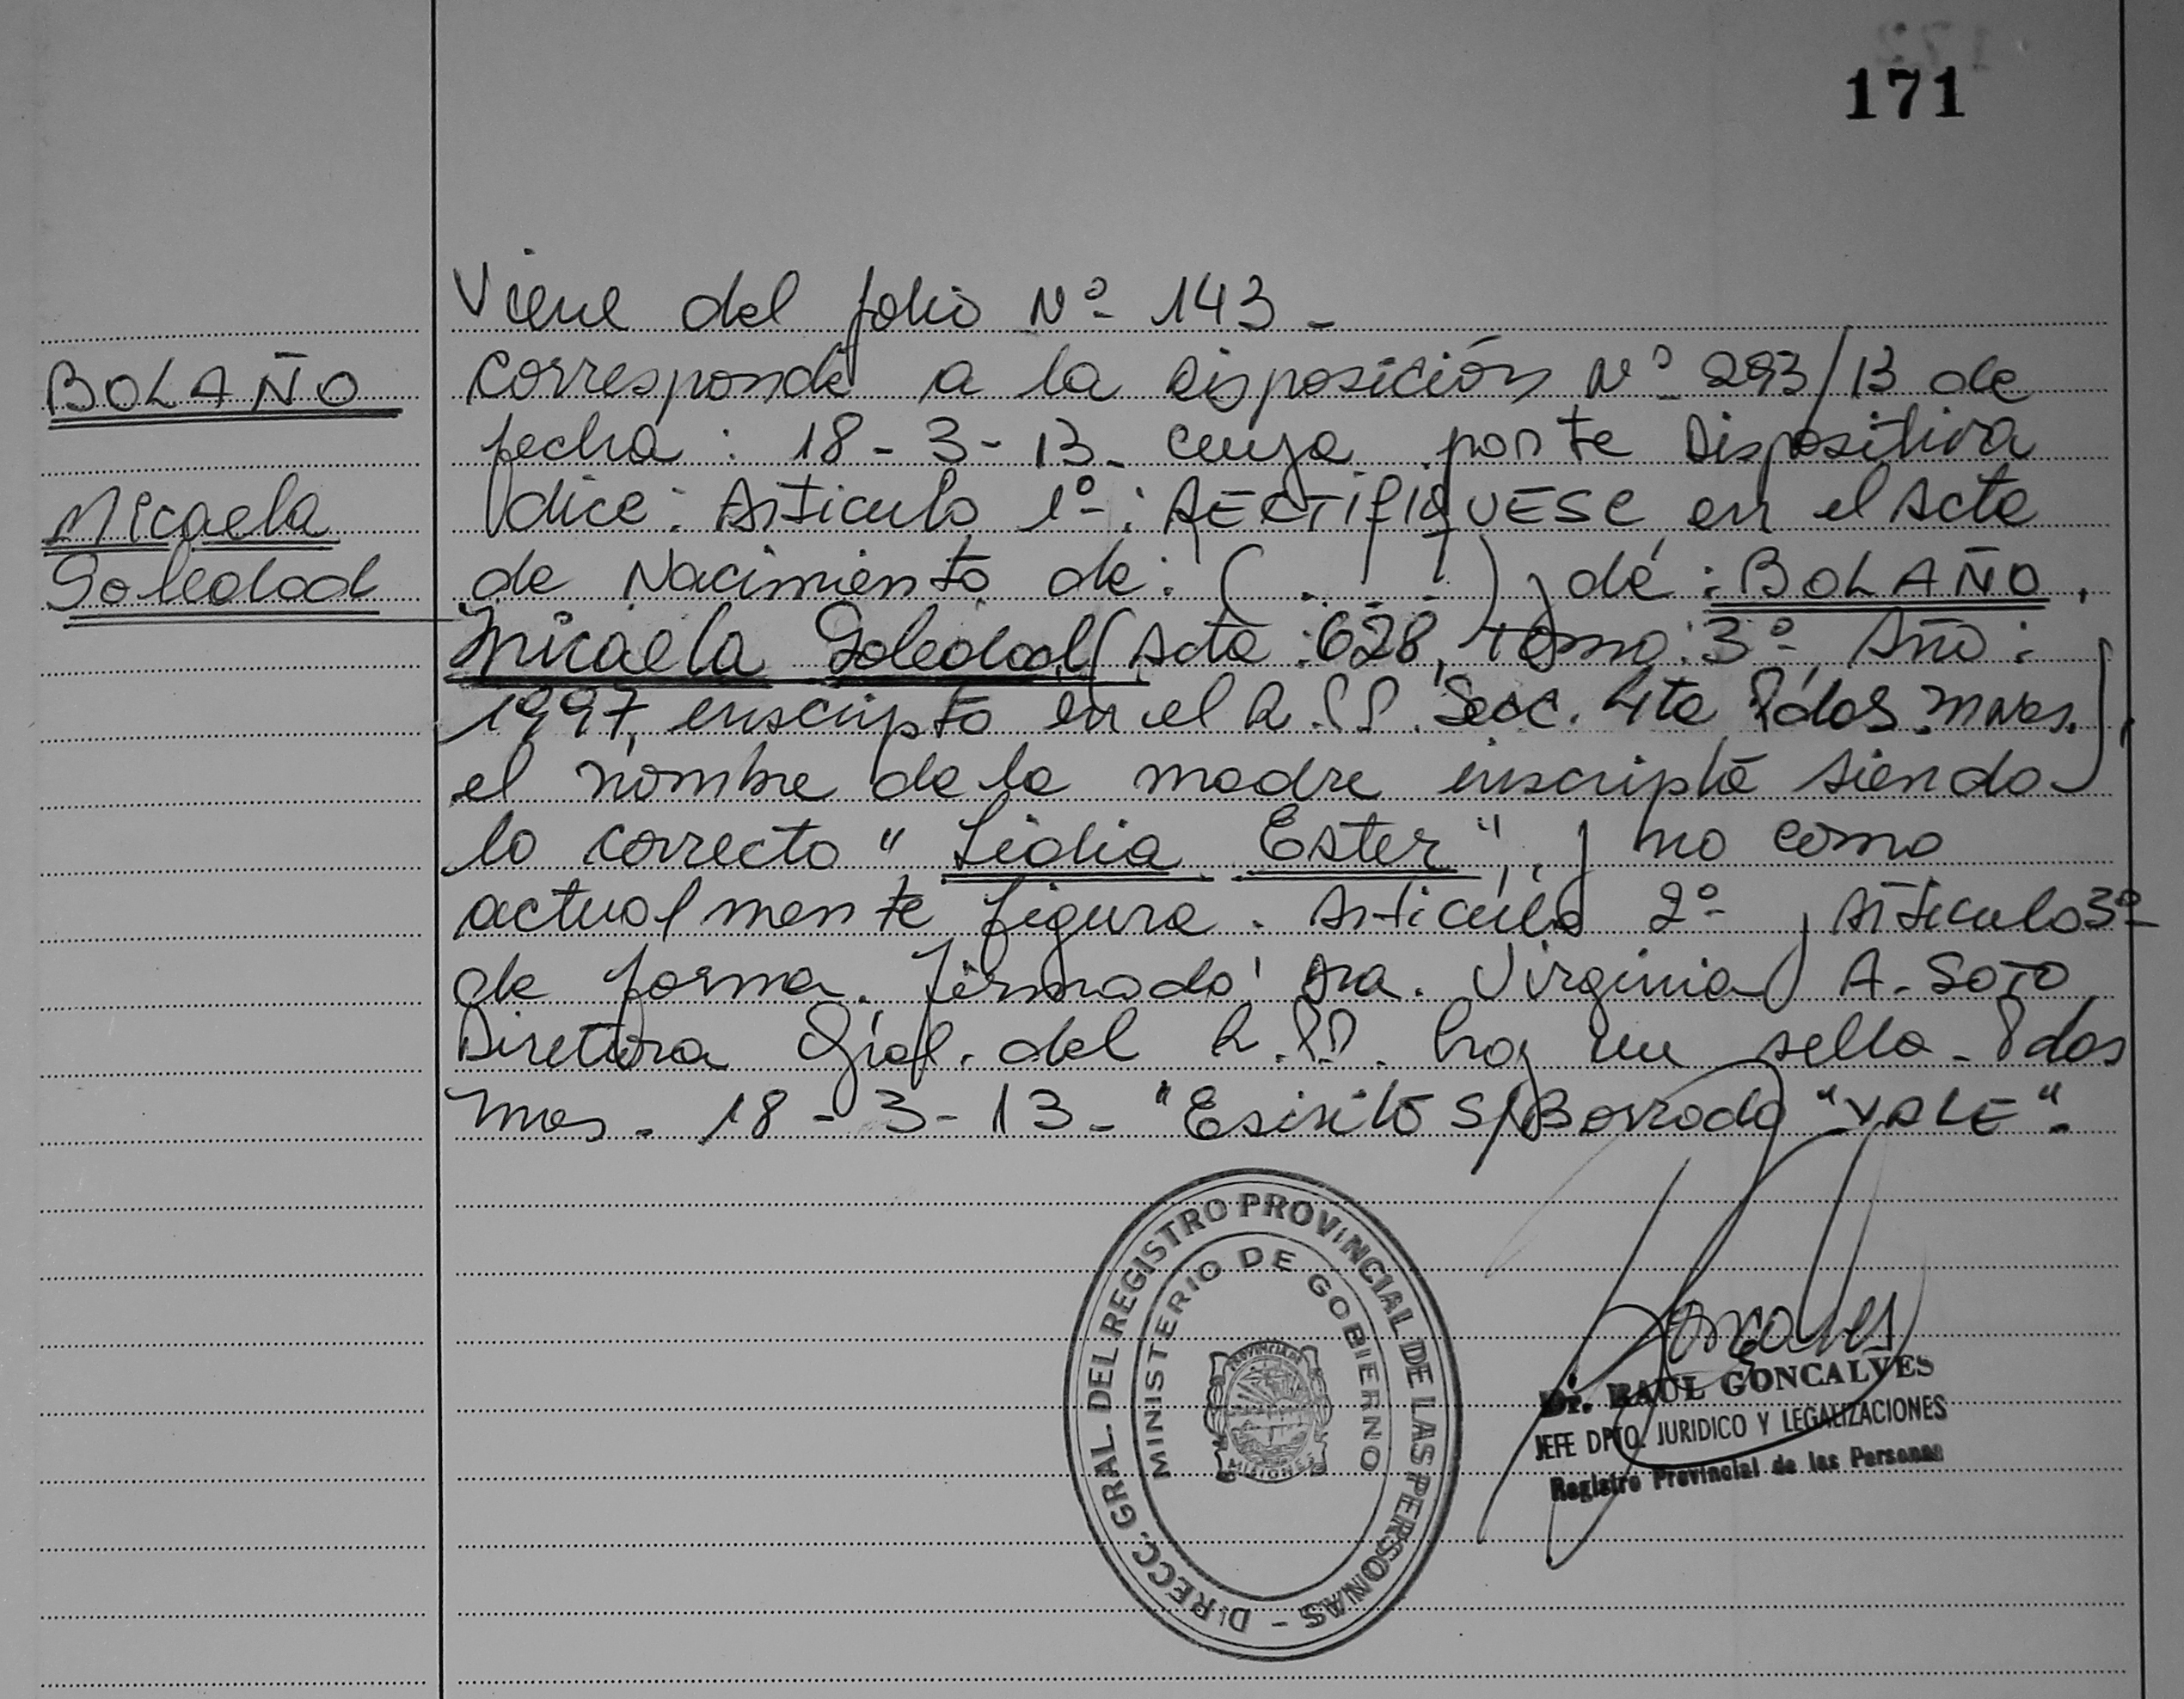 171
Viene del folio Nº 143 -
BOLAÑO
Corresponde a la Disposición Nº 293/13 de
fecha : 18 - 3 - 13 - cuya parte Dispositiva
Micaela
dice : Articulo 1º : RECTIFIQUESE en el Acta
Soledad
de Nacimiento de : (. . . . .) , de : BOLAÑO ,
Micaela Soledad ( Acta : 628, Tomo : 3º Año :
1997, inscripta en el R.P.P. Secc. 4ta Pdas. Mnes. )
el nombre de la madre inscripta siendo
lo correcto " Lidia Ester " , y no como
actualmente figura . Articulo 2º y Articulo 3º
de forma . Firmado Dra. Virginia A. SOTO
Diretora Gral. del R.P.P. hay un sello - Pdas
Mnes - 18 - 3 - 13 - "Escrito S/Borrado "VALE" .
DIRECC. GRAL. DEL REGISTRO PROVINCIAL DE LAS PERSONAS -
MINISTERIO DE GOBIERNO
PROVINCIA DE
MISIONES
Goncalves
Dr. RAUL GONCALVES
JEFE DPTO. JURIDICO Y LEGALIZACIONES
Registro Provincial de las Personas